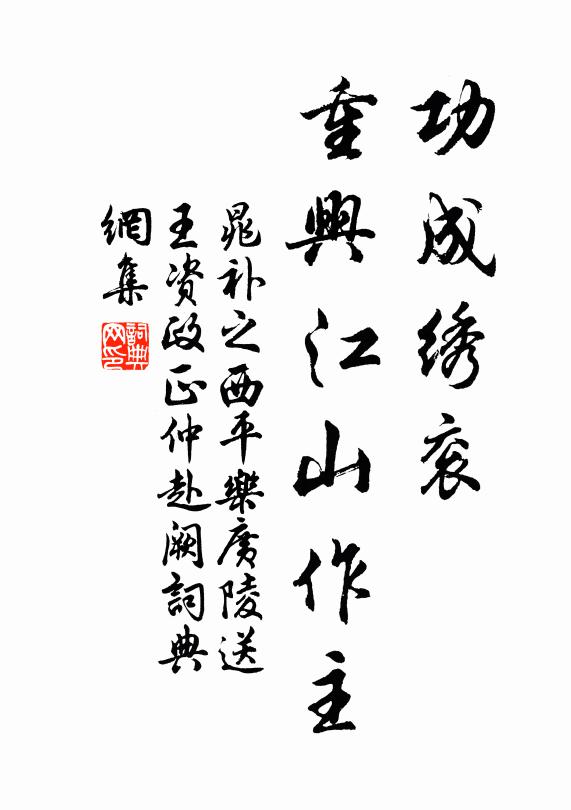 功成绣衮
重興江山作主
晁补之西平樂廣陵送
王资政正仲赴阙詞典
網集
詞典网印